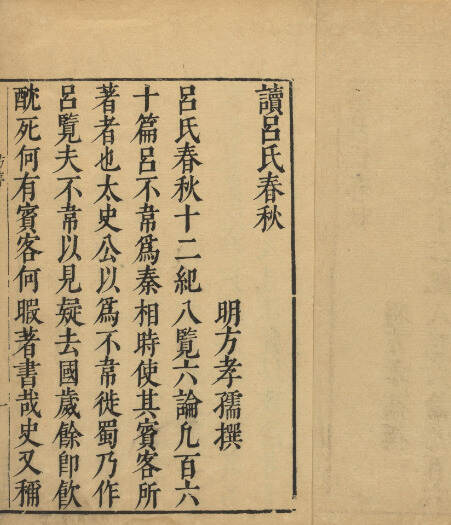 讀呂氏春秋
明方孝孺撰
呂氏春秋十二紀八覽六論凡百六
十篇呂不韋爲秦相時使其賓客所
著者也太史公以爲不韋徙蜀乃作
呂覽夫不韋以見疑去國歲餘卽飮
酖死何有賓客何暇著書哉史又稱